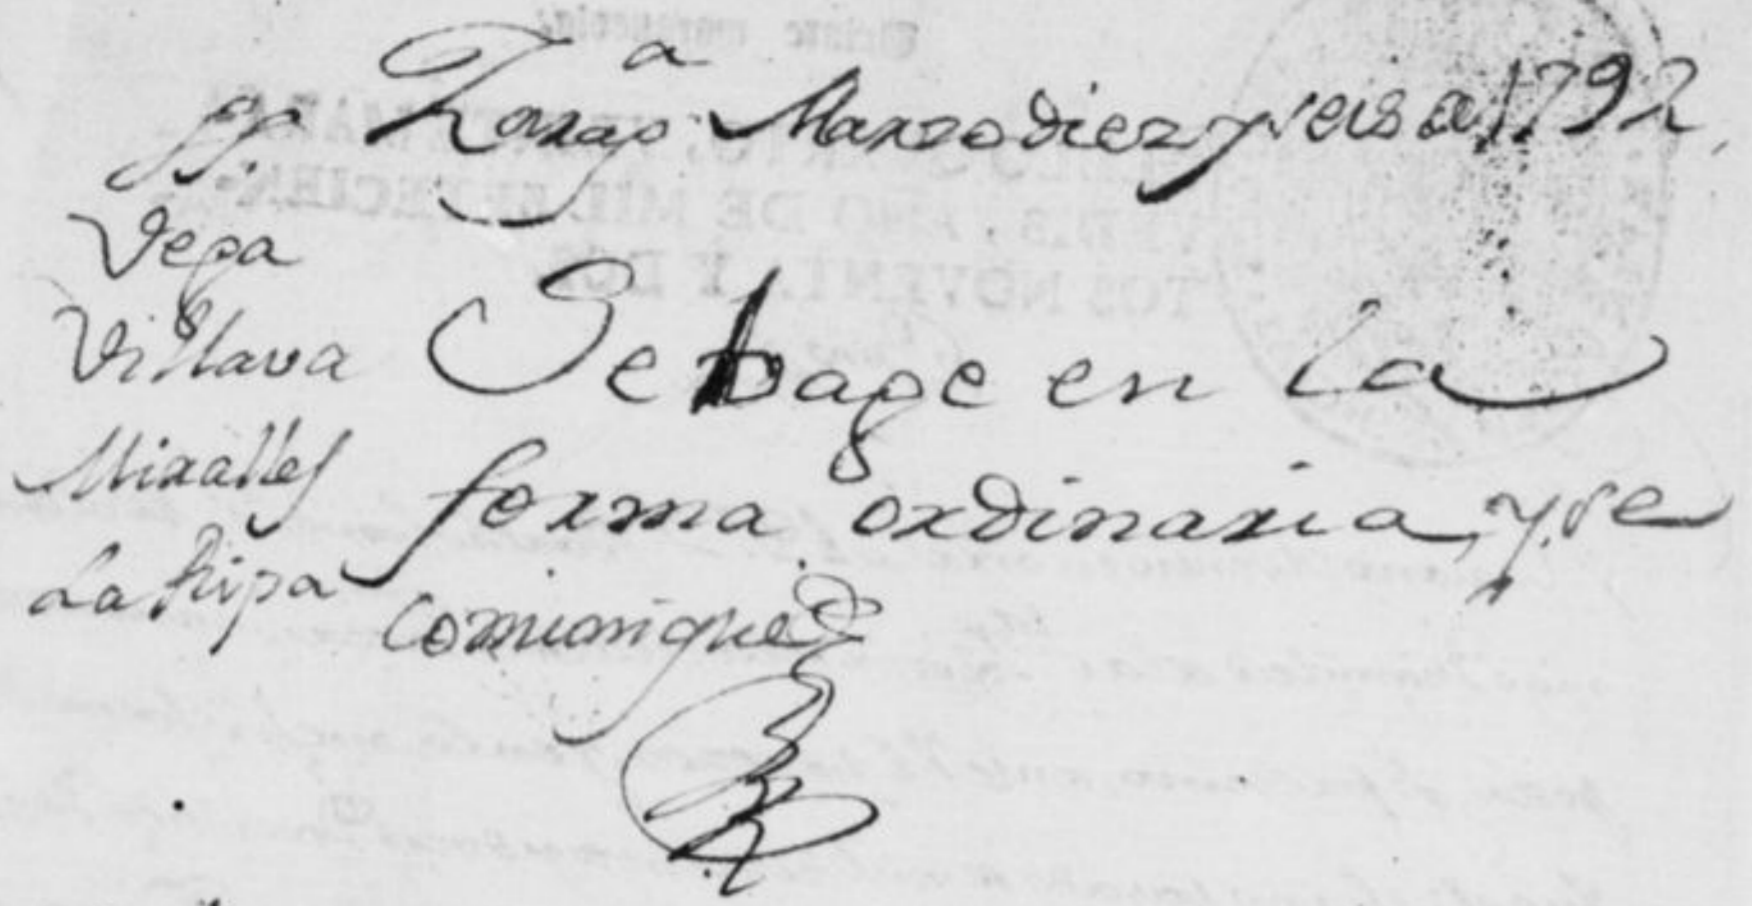 SS.
Vega
Villava
Miralles
La Ripa
Zarag.a Marzo diez y seis de 1792.
Se tage en la
forma ordinaria, y se
comunique